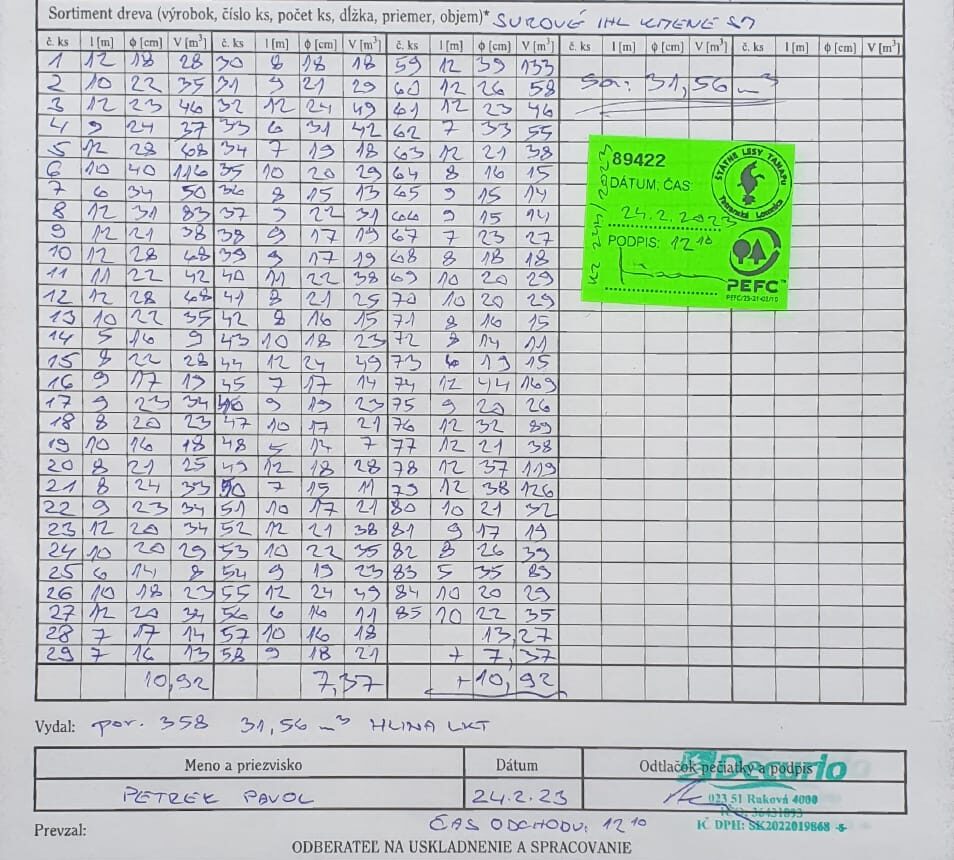 Sortiment dreva (výrobok, číslo ks, počet ks, dĺžka, priemer, objem)* SUROVÉ IHL KMENE
č. ks l [m] ϕ [cm] V [m³] č. ks l [m] ϕ [cm] V [m³] č. ks l [m] ϕ [cm] V [m³] č. ks l [m] ϕ [cm] V [m³] č. ks l [m] ϕ [cm] V [m³]
1 12 18 28 30 8 18 18 59 12 39 133
2 10 22 35 31 9 21 29 60 12 26 58 Sa: 31,56 m³
3 12 23 46 32 12 24 49 61 12 23 46
4 9 24 37 33 6 31 42 62 7 33 55
5 12 28 68 34 7 19 18 63 12 21 38
6 10 40 116 35 10 20 29 64 8 16 15
7 6 34 50 36 8 15 13 65 9 15 14
8 12 31 83 37 9 22 31 66 9 15 14
9 12 21 38 38 9 17 19 67 7 23 27
10 12 28 68 39 9 17 19 68 8 18 18
11 11 22 42 40 11 22 38 69 10 20 29
12 12 28 68 41 8 21 25 70 10 20 29
13 10 22 35 42 8 16 15 71 8 16 15
14 5 16 9 43 10 18 23 72 8 14 11
15 8 22 28 44 12 24 49 73 6 19 15
16 9 17 19 45 7 17 14 74 12 44 169
17 9 23 34 46 9 19 23 75 9 20 26
18 8 20 23 47 10 17 21 76 12 32 89
19 10 16 18 48 5 14 7 77 12 21 38
20 8 21 25 49 12 18 28 78 12 37 119
21 8 24 33 50 7 15 11 79 12 38 126
22 9 23 34 51 10 17 21 80 10 21 32
23 12 20 34 52 12 21 38 81 9 17 19
24 10 20 29 53 10 22 35 82 8 26 39
25 6 14 8 54 9 19 23 83 5 35 89
26 10 18 23 55 12 24 49 84 10 20 29
27 12 20 34 56 6 16 11 85 10 22 35
28 7 17 14 57 10 16 18 13,27
29 7 16 13 58 9 18 21 + 7,37
10,92 7,37 +10,92
89422
DÁTUM, ČAS
24.2.2023
PODPIS: 12¹⁰
ŠTÁTNE LESY TANAPU
Tatranská Lomnica
PEFC™
Vydal: por. 358 31,56 m³ HLINA LKT
Meno a priezvisko Dátum Odtlačok pečiatky a podpis
Decurio
PETREK PAVOL 24.2.23
023 51 Raková 4000
IČ DPH: SK2022019868 -5-
Prevzal: ČAS ODCHODU: 12¹⁰
ODBERATEĽ NA USKLADNENIE A SPRACOVANIE